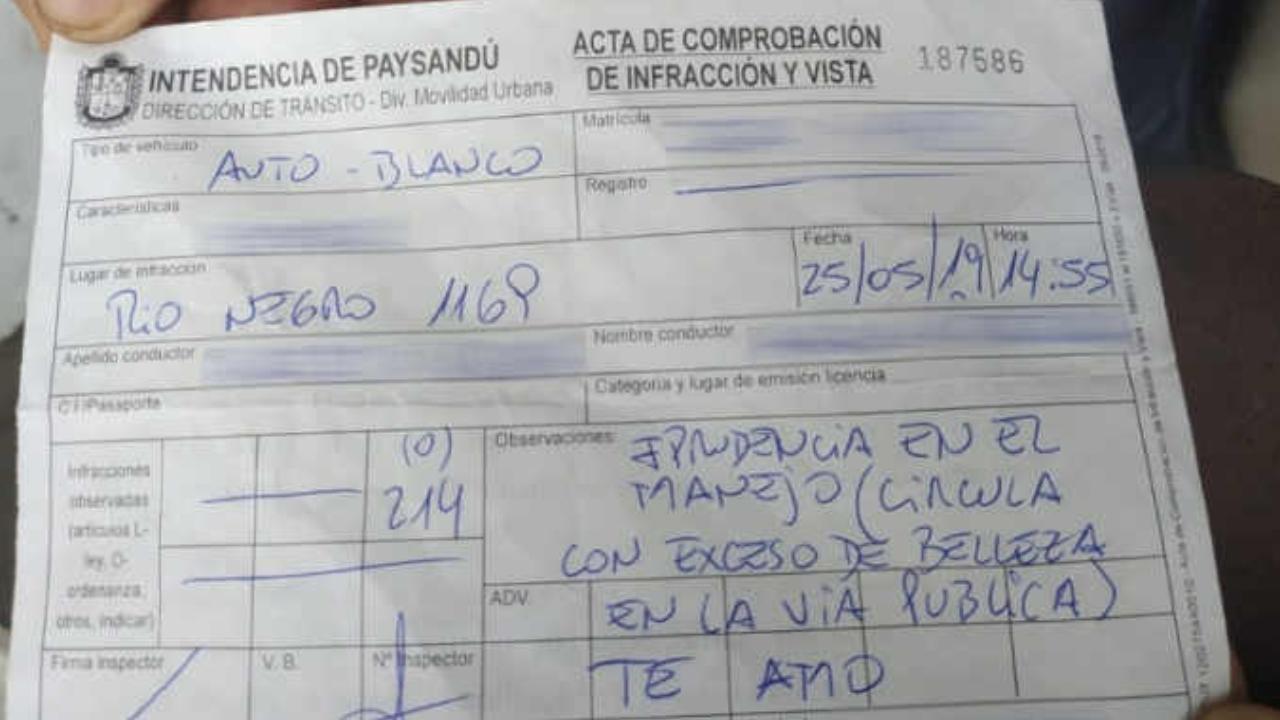 INTENDENCIA DE PAYSANDÚ
DIRECCIÓN DE TRÁNSITO - Div. Movilidad Urbana
ACTA DE COMPROBACIÓN
DE INFRACCIÓN Y VISTA
187586
Tipo de vehículo
AUTO - BLANCO
Matrícula
Características
Registro
Lugar de infracción
RIO NEGRO 1169
Fecha
25/05/19
Hora
14:55
Apellido conductor
Nombre conductor
C.I/Pasaporte
Categoría y lugar de emisión licencia
Infracciones
observadas
(artículos L-
ley, O-
ordenanza,
otros, indicar)
(0)
214
Observaciones:
IPRUDENCIA EN EL
MANEJO (CIRCULA
CON EXCESO DE BELLEZA
EN LA VIA PUBLICA)
TE AMO
ADV.
Firma Inspector
V. B.
Nº Inspector